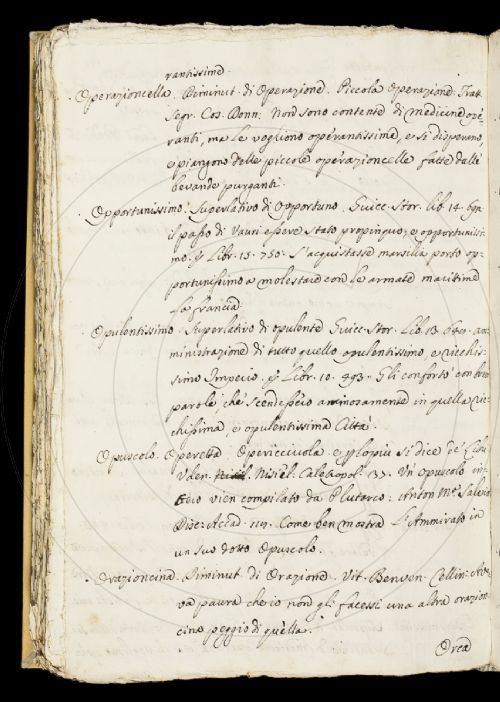 rantissime.
Operazioncella. Diminut. di Operazione. Piccola Operazione. Tratt.
Segr. Cos. Donn. Non sono contente di Medicine ope-
ranti, ma le vogliono operantissime, e si disperano,
e piangono delle piccole operazioncelle fatte dalle
bevande purganti.
Opportunissimo. Superlativo di Opportuno. Guicc. Stor. lib. 14.
il passo di Vauri essere stato propinquo, e opportunissi-
mo. Libr. 15. 750. S'acquistasse marsilia porto op-
portunissimo a molestare con le armate marittime
la francia.
Opulentissimo. Superlativo di opulente Guicc. Stor. Lib. 13. 640. am-
ministrazione di tutto quello opulentissimo e ricchis-
simo Imperio. Libr. 10. 493. Gli confortò con brevi
parole, che scendessero animosamente in quella ric-
chissima, e opulentissima Città.
Opuscolo. Operetta, Opericciuola, e si dice de' Libri
Uden. Nisiel. 37. Un opuscolo in-
tero vien compilato da Plutarco: Anton Mª Salvin
Disc. Accad. 114. Come ben mostra l'Ammirato in
un suo dotto Opuscolo.
Orazioncina. Diminut. di Orazione. Vit. Benven. Cellin.
va paura che io non gli facessi una altra orazion-
cina peggio di quella.
Orca